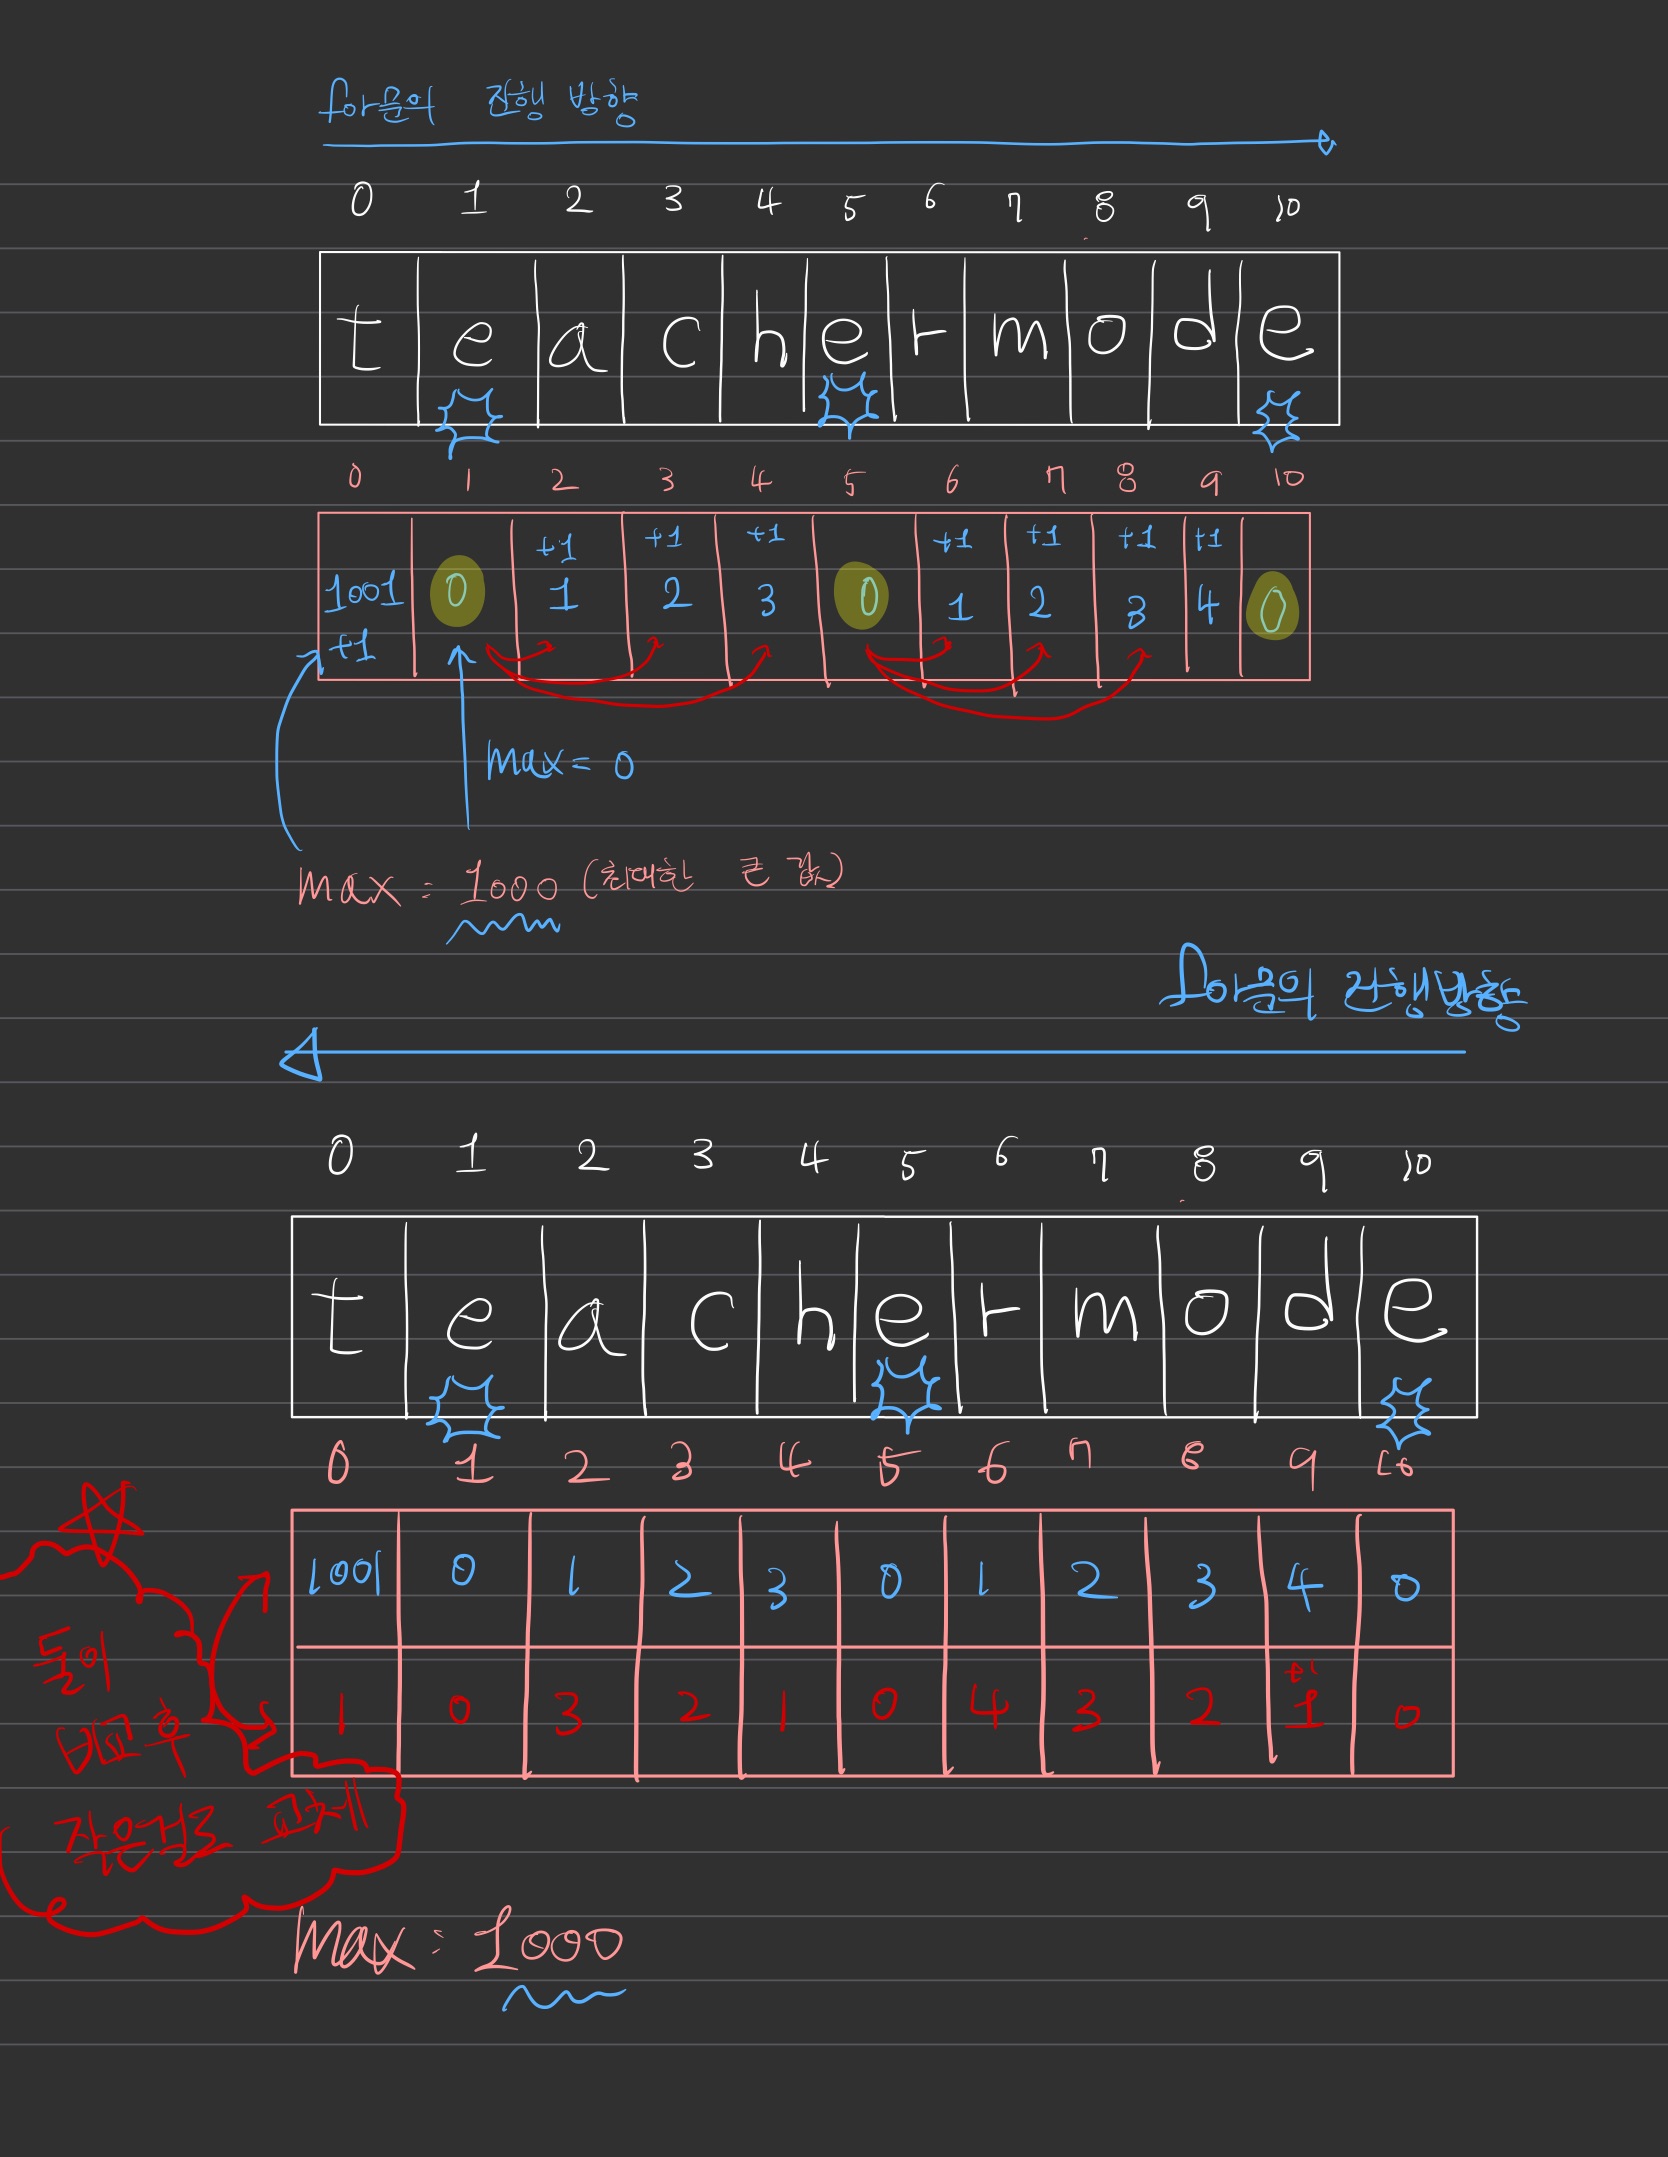 for문의 진행 방향
0 1 2 3 4 5 6 7 8 9 10
t e a c h e r m o d e
0 1 2 3 4 5 6 7 8 9 10
+1 +1 +1 +1 +1 +1 +1
1001 0 1 2 3 0 1 2 3 4 0
+1
max = 0
max : 1000 (최대한 큰 값)
for문의 진행방향
0 1 2 3 4 5 6 7 8 9 10
t e a c h e r m o d e
0 1 2 3 4 5 6 7 8 9 10
1001 0 1 2 3 0 1 2 3 4 0
+1
1 0 3 2 1 0 4 3 2 1 0
둘이
비교 후
작은걸로 교체
max : 1000